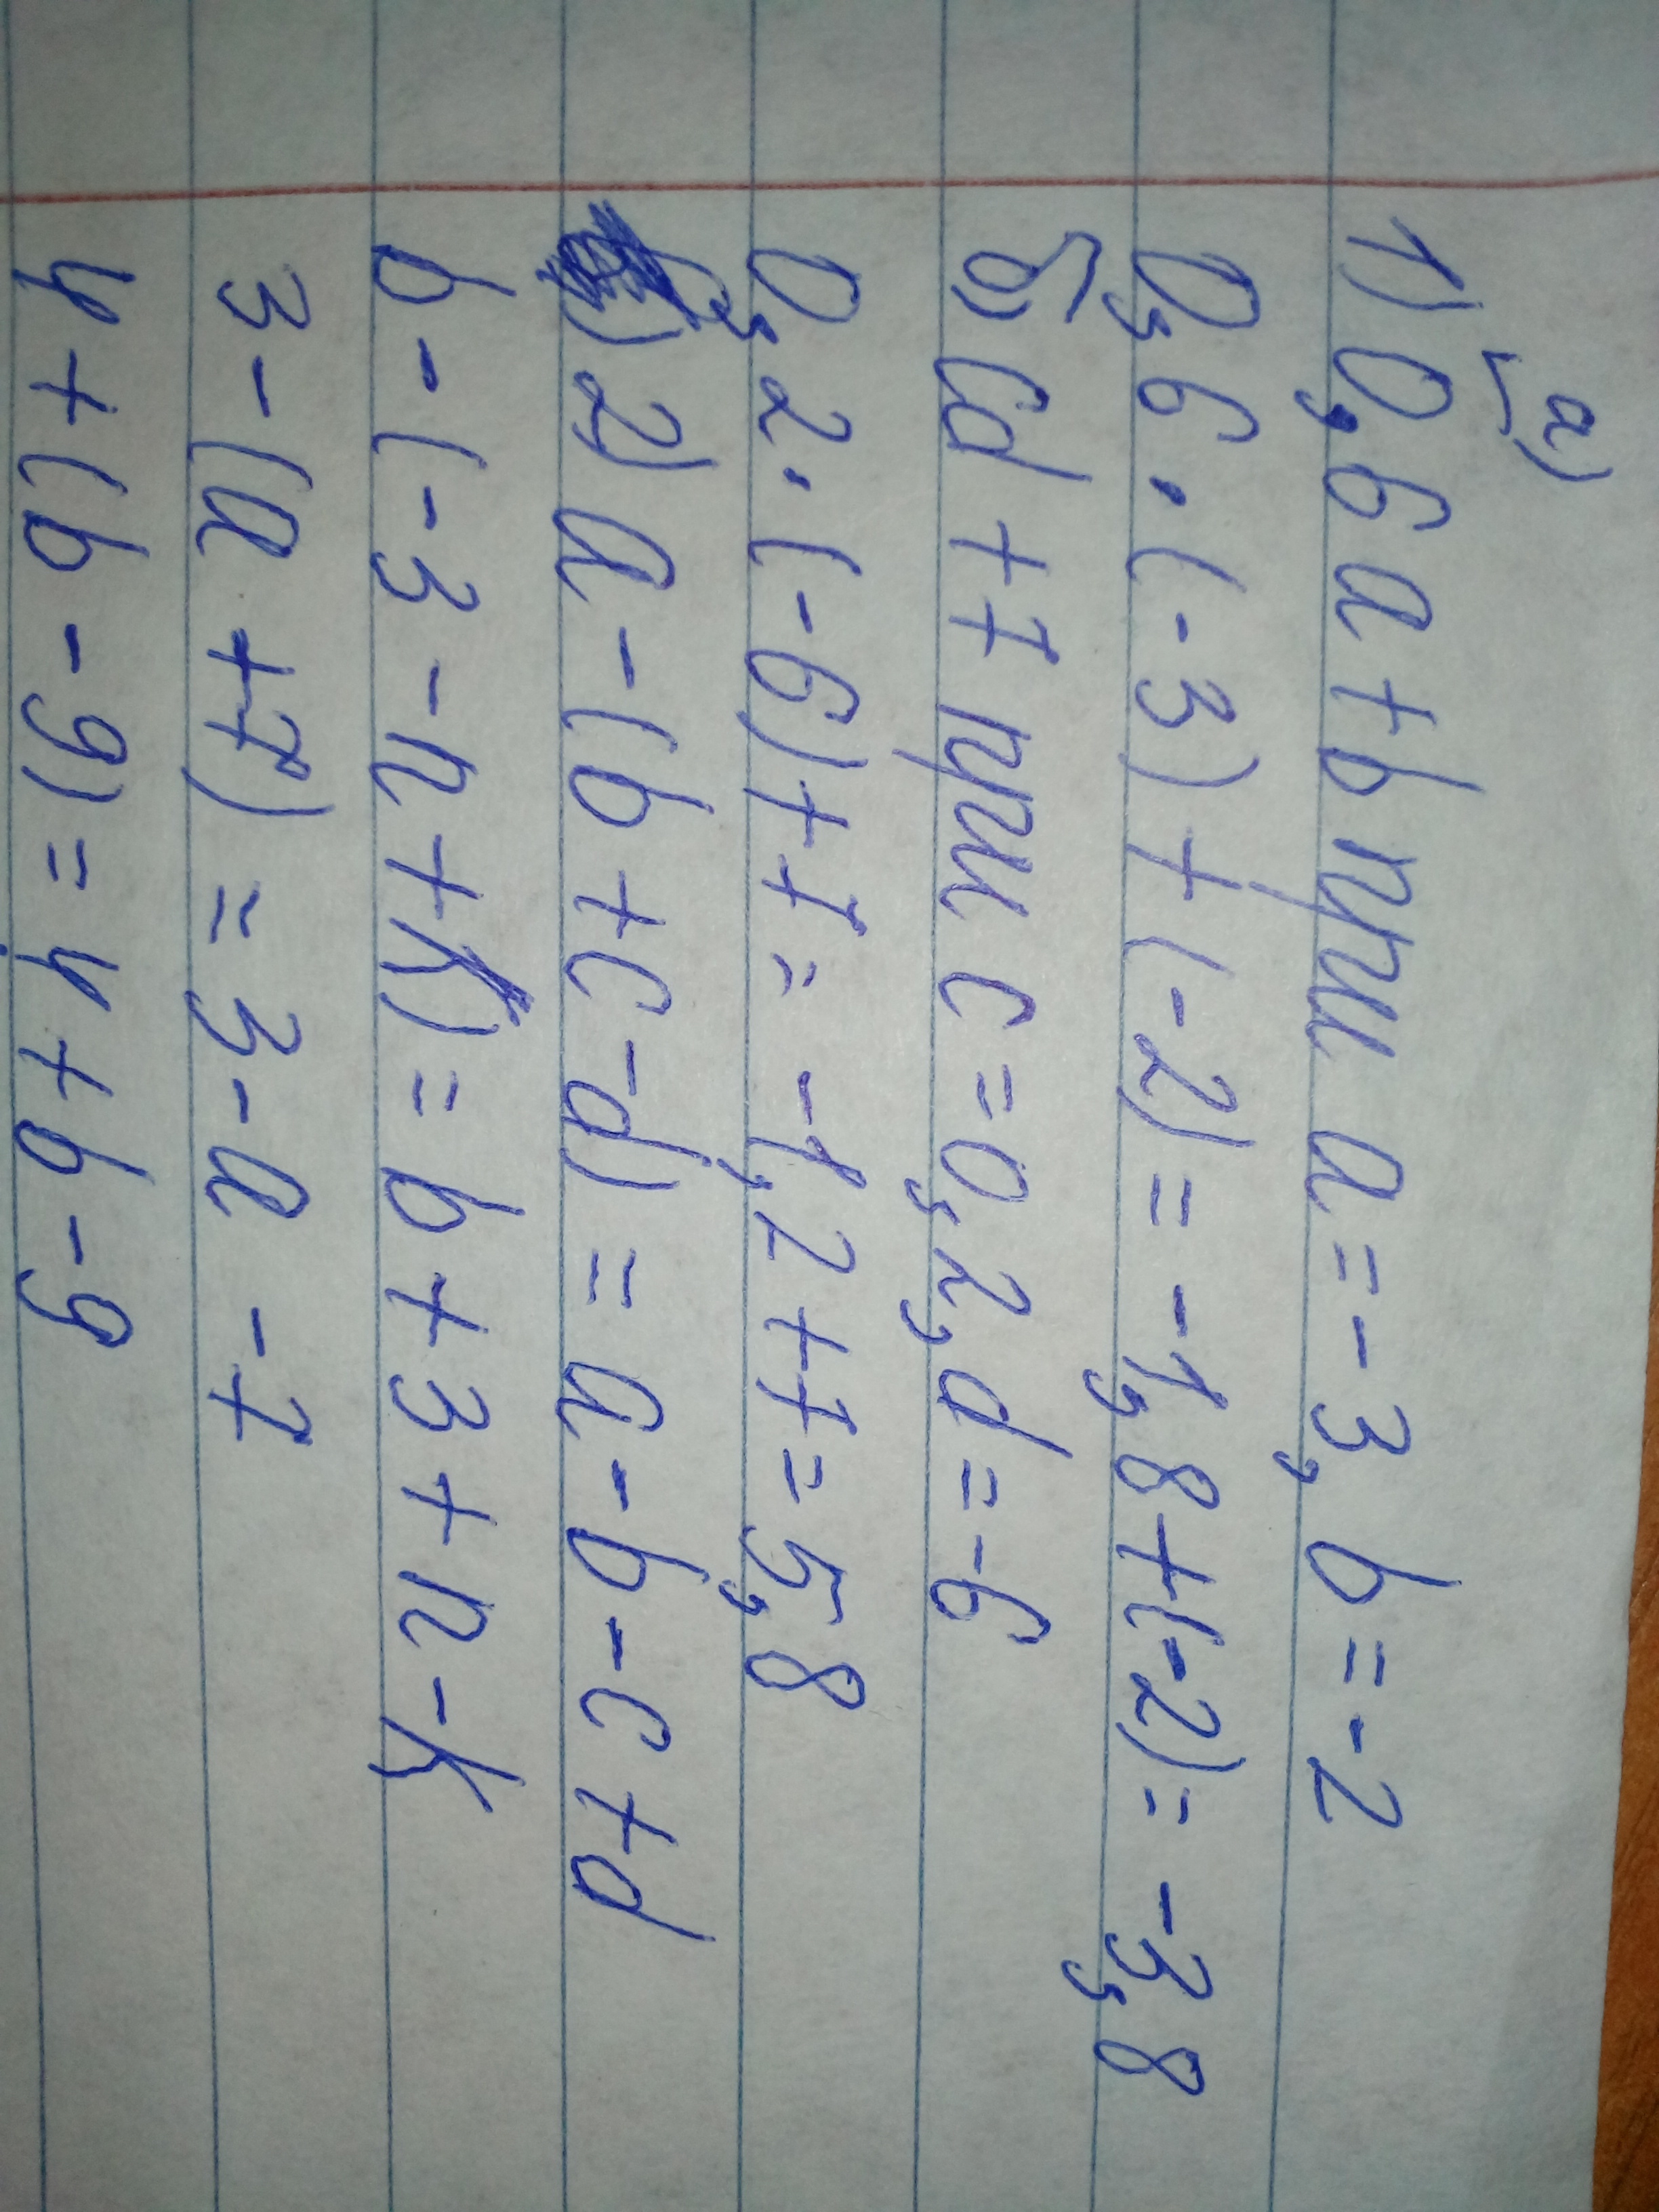 а)
1) 0,6a + b при a = -3, b = -2
0,6 · (-3) + (-2) = -1,8 + (-2) = -3,8
б) cd + 7 при c = 0,2, d = -6
0,2 · (-6) + 7 = -1,2 + 7 = 5,8
2) a - (b + c - d) = a - b - c + d
b - (-3 - n + k) = b + 3 + n - k
3 - (a + 7) = 3 - a - 7
y + (b - 9) = y + b - 9